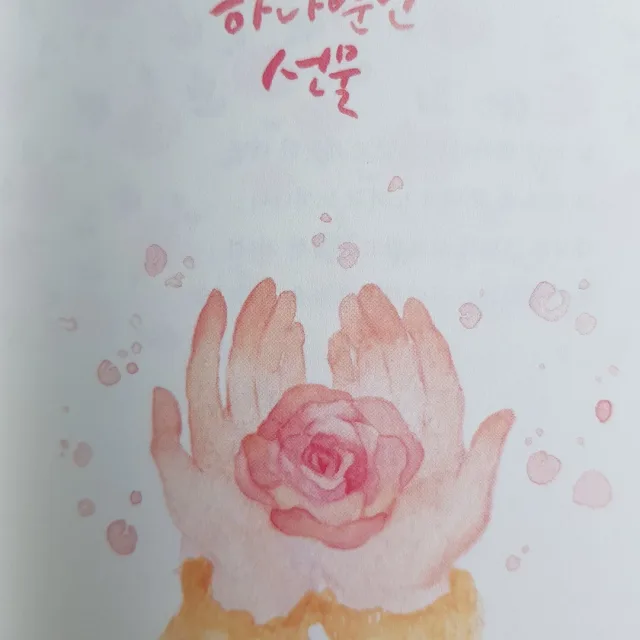 하나뿐인
선물